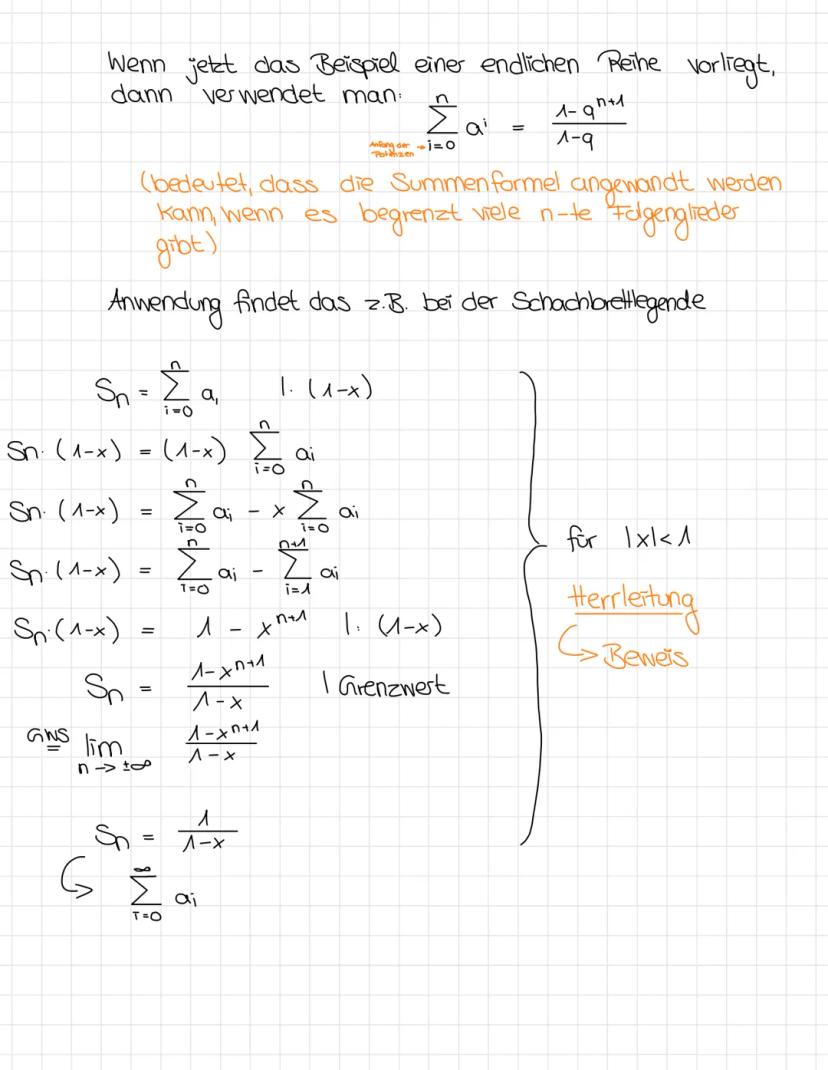 Wenn jetzt das Beispiel einer endlichen Reihe vorliegt,
dann verwendet man:
n
∑ aⁱ = (1-qⁿ⁺¹)/(1-q)
Anfang der Potenzen → i=0
(bedeutet, dass die Summenformel angewandt werden
kann, wenn es begrenzt viele n-te Folgenglieder
gibt)
Anwendung findet das z.B. bei der Schachbrettlegende
Sn = ∑_{i=0}^{n} a, |· (1-x)
Sn· (1-x) = (1-x) ∑_{i=0}^{n} ai
Sn· (1-x) = ∑_{i=0}^{n} ai - x ∑_{i=0}^{n} ai
Sn·(1-x) = ∑_{i=0}^{n} ai - ∑_{i=1}^{n+1} ai
Sn·(1-x) = 1 - xⁿ⁺¹ |: (1-x)
Sn = (1-xⁿ⁺¹)/(1-x) | Grenzwert
GWS lim_{n -> ±∞} (1-xⁿ⁺¹)/(1-x)
Sn = 1/(1-x)
↳ ∑_{i=0}^{∞} ai
für |x|<1
Herrleitung
↳ Beweis